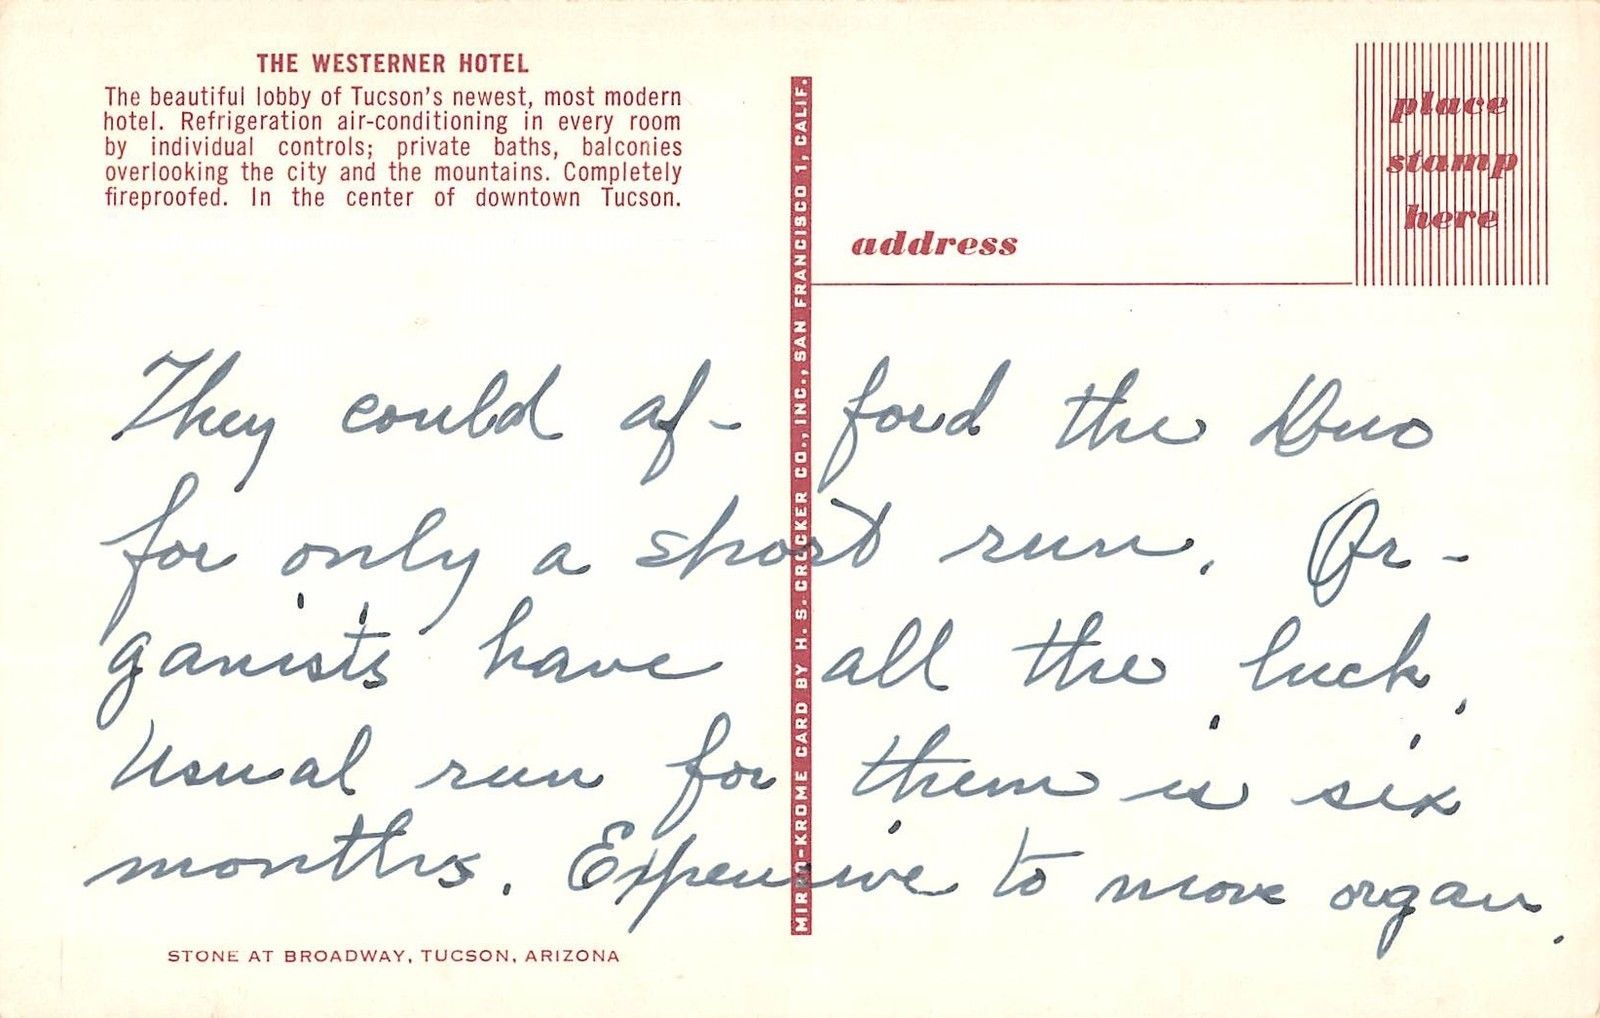 THE WESTERNER HOTEL
The beautiful lobby of Tucson's newest, most modern
hotel. Refrigeration air-conditioning in every room
by individual controls; private baths, balconies
overlooking the city and the mountains. Completely
fireproofed. In the center of downtown Tucson.
MIRRO-KROME CARD BY H. S. CROCKER CO., INC., SAN FRANCISCO 1, CALIF.
place
stamp
here
address
They could af- ford the Duo
for only a short run. Or-
ganists have all the luck.
Usual run for them is six
months. Expensive to move organ.
STONE AT BROADWAY, TUCSON, ARIZONA